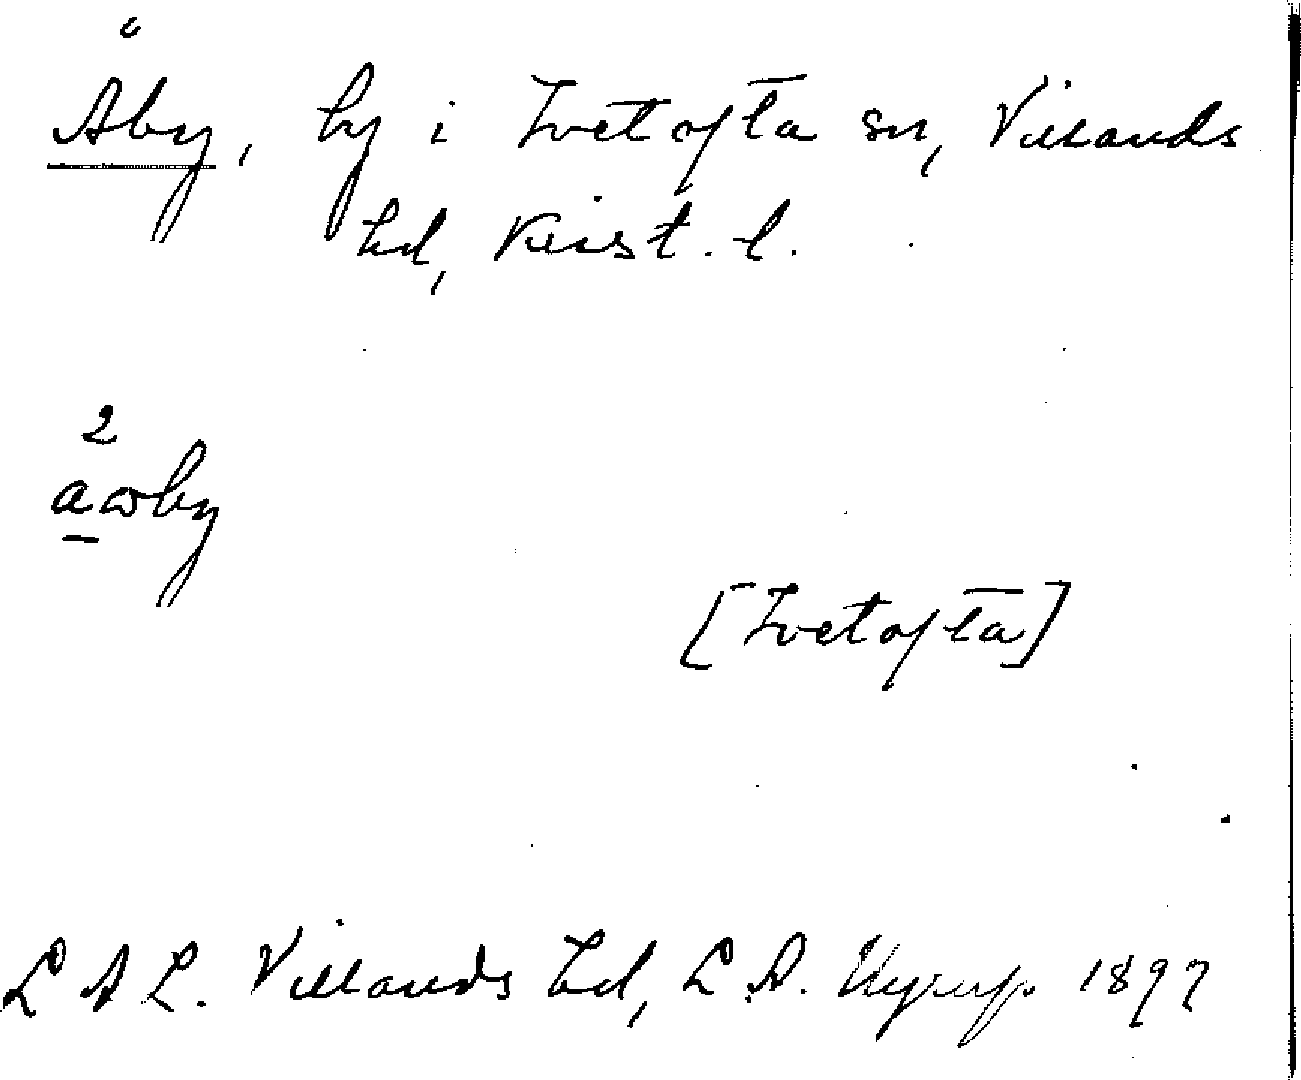 Åby, by i Ivetofta sn, Villands
hd, Krist. l.
2
aωby
[Ivetofta]
L A L. Villands hd, L. A. Nyrup. 1897